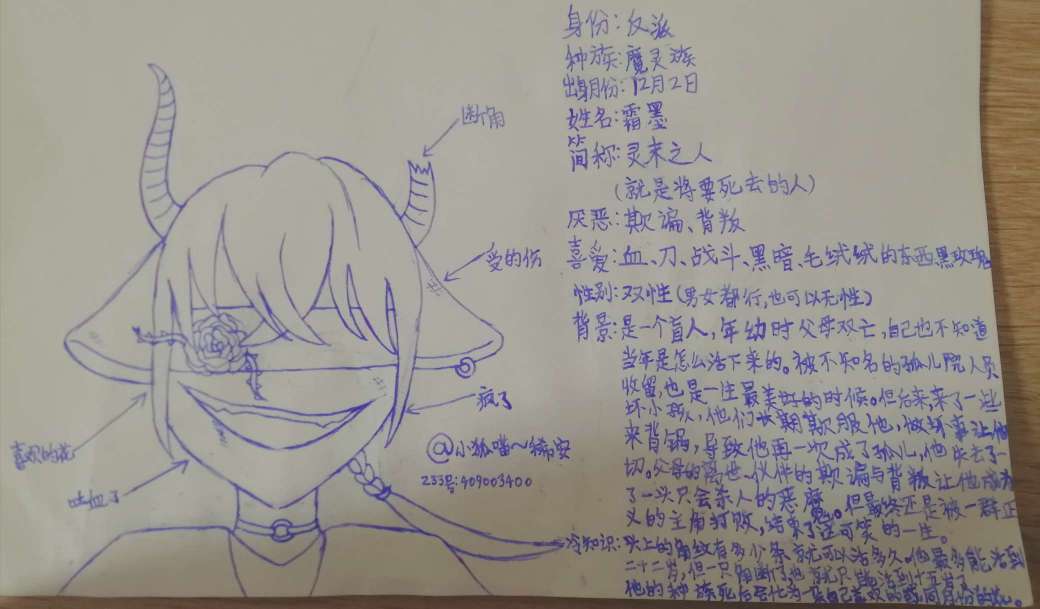 断角
受的伤
疯了
喜欢的花
吐血了
@小狐喵~稀安
233号:409003400
身份:反派
种族:魔灵族
出身月份:12月2日
姓名:霜墨
简称:灵末之人
(就是将要死去的人)
厌恶:欺骗、背叛
喜爱:血、刀、战斗、黑暗、毛绒绒的东西黑玫瑰
性别:双性(男女都行,也可以无性)
背景:是一个盲人,年幼时父母双亡,自己也不知道
当年是怎么活下来的。被不知名的孤儿院人员
收留,也是一生最美好的时候。但后来,来了一些
坏小孩,他们长期欺服他,做坏事让他
来背锅,导致他再一次成了孤儿,他失去了一
切。父母的离世、伙伴的欺骗与背叛让他成为
了一头只会杀人的恶魔。但最终还是被一群正
义的主角打败,结束了这可笑的一生。
冷知识:头上的角纹有多少条就可以活多久。他最多能活到
二十二岁,但一只角断了他就只能活到十五岁了
他的种族死后会化为一朵自己喜欢的或同身份的花。